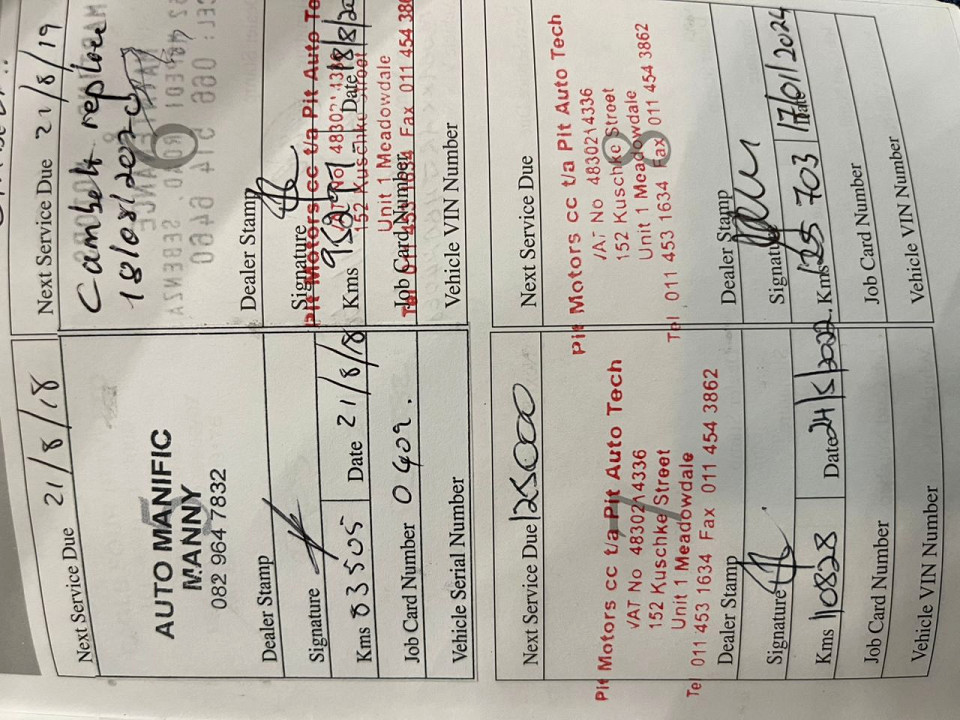 Next Service Due 21/8/18
5
AUTO MANIFIC
MANNY
082 964 7832
Dealer Stamp
Signature
Kms 83505 Date 21/8/18
Job Card Number 0409.
Vehicle Serial Number
Next Service Due 21/8/19
Cambelt replace
18/08/2020
6
Dealer Stamp
Signature
Pit Motors cc t/a Pit Auto Te
152 Kuschke Street
Kms 95297 Date 18/8/20
Unit 1 Meadowdale
Job Card Number
Fax 011 454 386
Vehicle VIN Number
Next Service Due 125000
7
Pit Motors cc t/a Pit Auto Tech
VAT No 4830214336
152 Kuschke Street
Unit 1 Meadowdale
Tel 011 453 1634 Fax 011 454 3862
Dealer Stamp
Signature
Kms 110828 Date 24/5/2022.
Job Card Number
Vehicle VIN Number
Next Service Due
8
Pit Motors cc t/a Pit Auto Tech
VAT No 4830214336
152 Kuschke Street
Unit 1 Meadowdale
Tel 011 453 1634 Fax 011 454 3862
Dealer Stamp
Signature
Kms 125 703 Date 17/01/2024
Job Card Number
Vehicle VIN Number